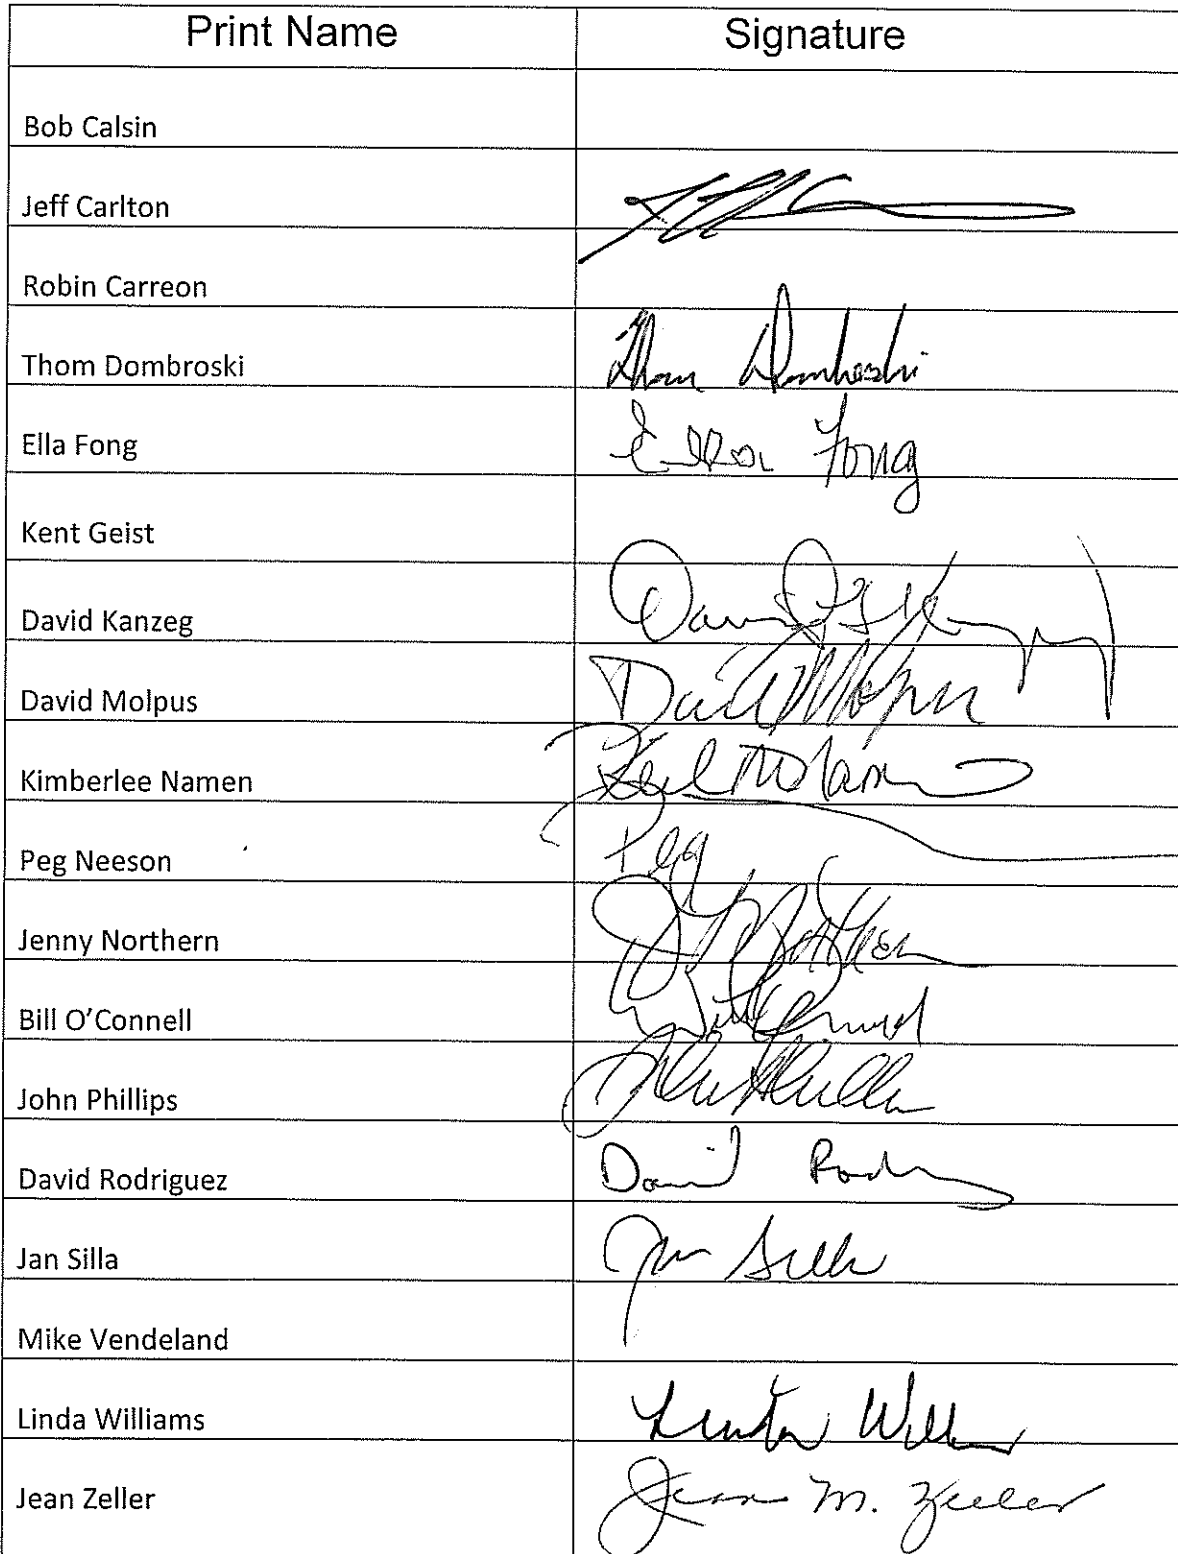 Print Name Signature
Bob Calsin
Jeff Carlton
Robin Carreon
Thom Dombroski Thom Dombroski
Ella Fong Ella Fong
Kent Geist
David Kanzeg David
David Molpus David Molpus
Kimberlee Namen
Peg Neeson Peg
Jenny Northern
Bill O'Connell
John Phillips John Phillips
David Rodriguez David
Jan Silla Jan Silla
Mike Vendeland
Linda Williams Linda
Jean Zeller Jean M. Zeller